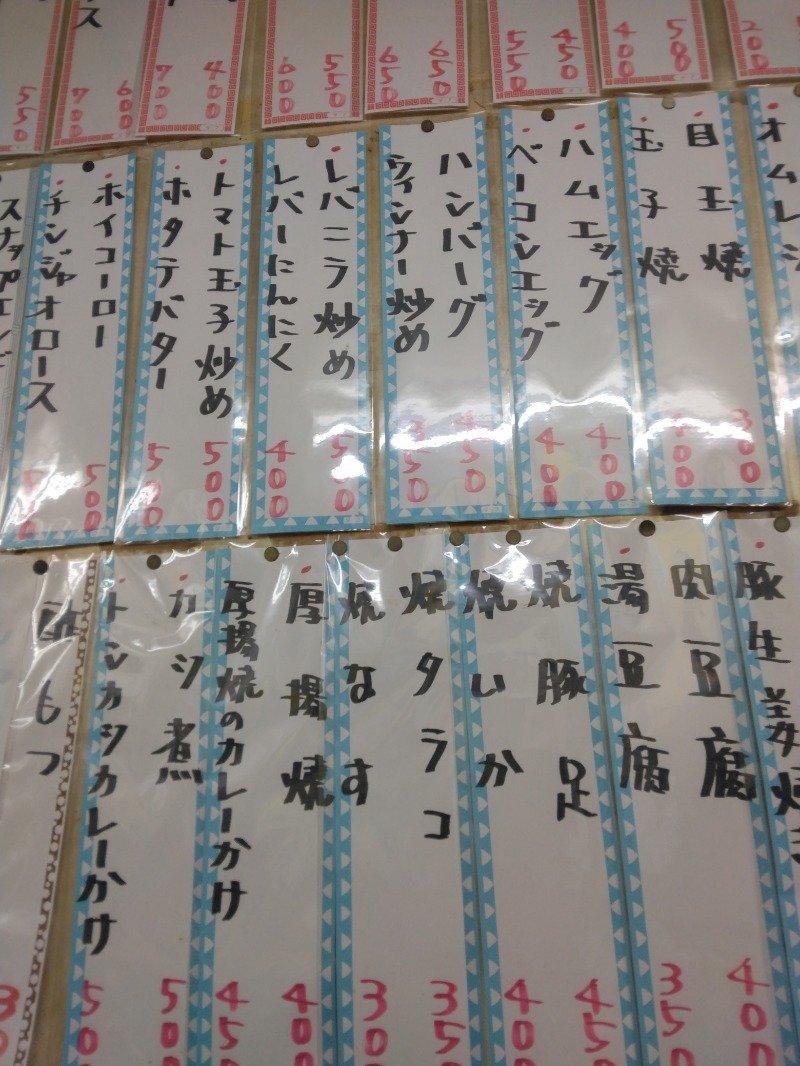 200
500
400
450
550
650
650
550
600
400
700
ス 600
700
550
オムレ
目玉焼 300
玉子焼 400
ハムエッグ 400
ベーコンエッグ 400
ハンバーグ 450
ウィンナー炒め 350
レバニラ炒め 500
レバーにんにく 400
トマト玉子炒め 500
ホタテバター 500
ホイコーロー 500
チンジャオロース 500
スナップエンド
豚生姜焼き
肉豆腐 400
湯豆腐 350
焼豚足 450
焼いか 400
焼タラコ 350
焼なす 300
厚揚焼 400
厚揚焼のカレーかけ 450
カツ煮 500
トンカツカレーかけ 500
もつ